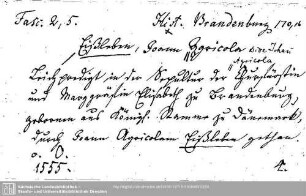 Fasc. 2, 5.
Hist. Brandenburg 170,16
Eißleben, Joann Agricola sive Isleb.
Agricola
Leichpredigt in der Sepultur der Churfürstin
und Marggräfin Elisabeth zu Brandenburg,
gebornen aus Königl. Stamme zu Dänemark,
durch Joann Agricolam Eißleben gethan
o. O.
1555.
4.
Sächsische Landesbibliothek -
Staats- und Universitätsbibliothek Dresden